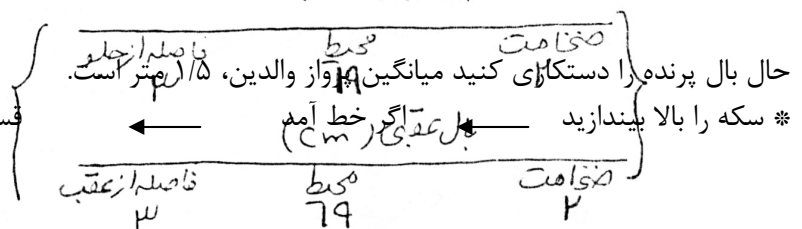 ضخامت محیط فاصله از جلو
حال بال پرنده را دستکاری کنید میانگین پرواز والدین، ۱/۵ متر است.
۲ ۱۹ ۳
* سکه را بالا بیندازید ← اگر خط آمد ←
بال عقبی (cm)
ضخامت محیط فاصله از عقب
۲ ۱۹ ۳